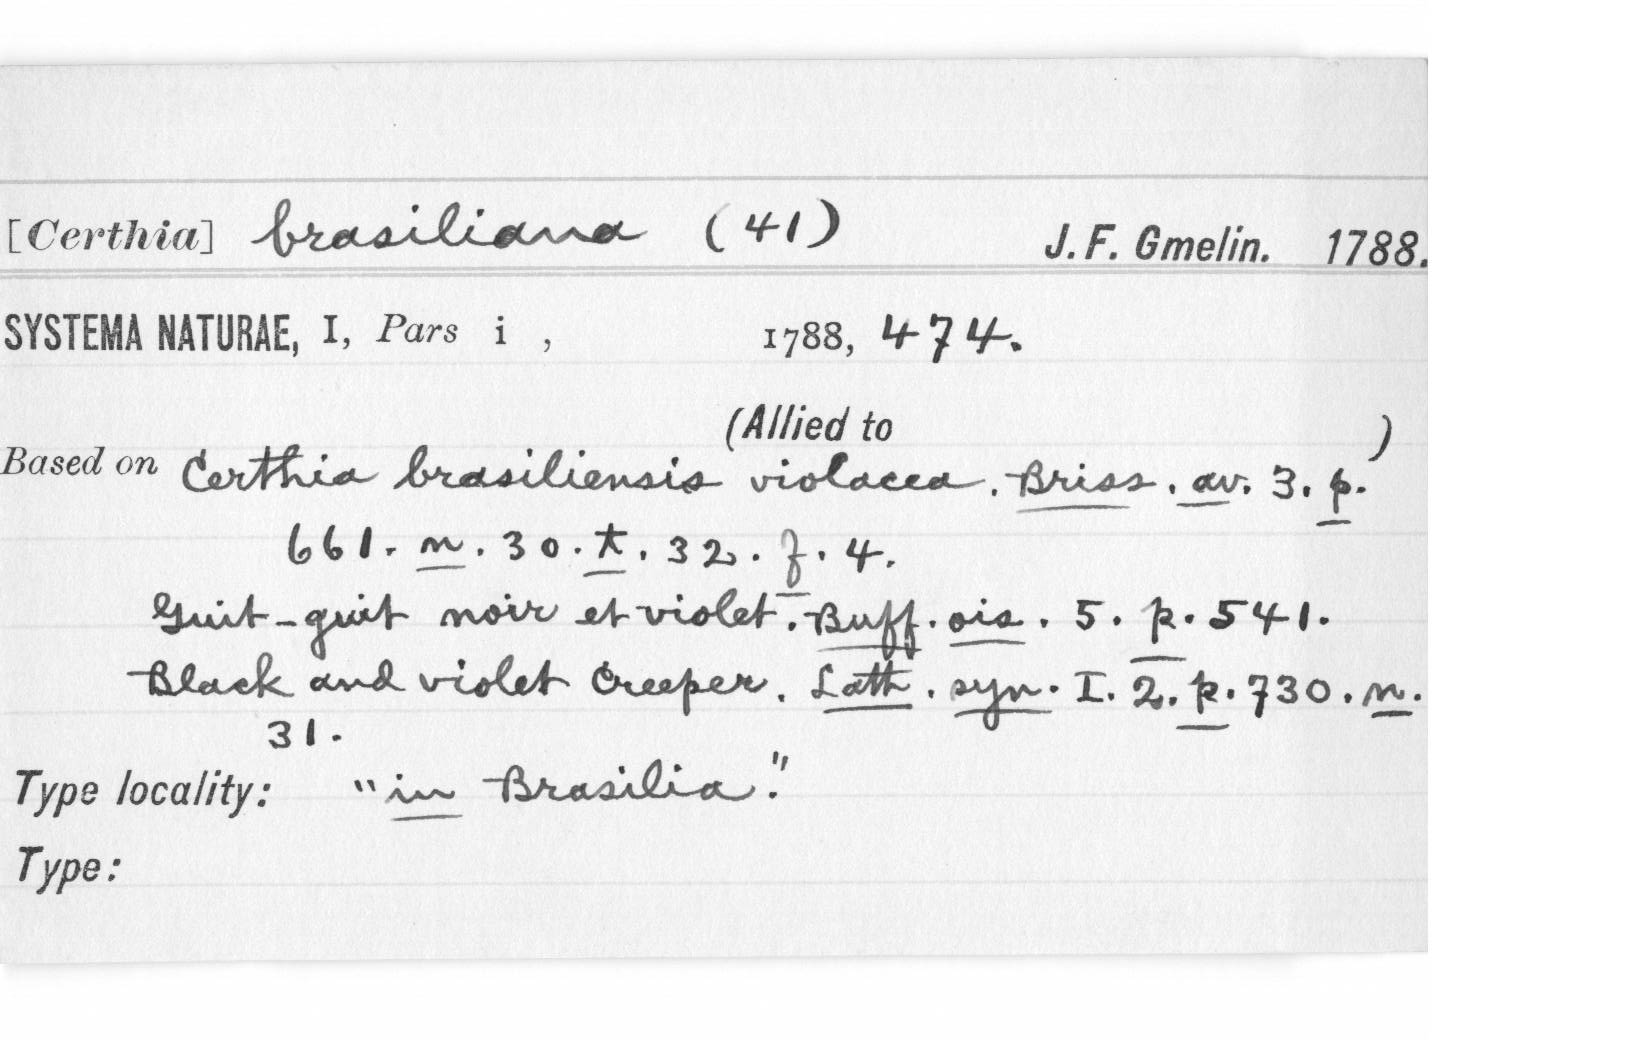 [Certhia] brasiliana (41) J. F. Gmelin. 1788.
SYSTEMA NATURAE, I, Pars i , 1788, 474.
(Allied to )
Based on Certhia brasiliensis violacea. Briss. av. 3. p.
661. n. 30. t. 32. f. 4.
Guit-guit noir et violet. Buff. ois. 5. p. 541.
Black and violet Creeper. Lath. syn. I. 2. p. 730. n.
31.
Type locality: "in Brasilia."
Type: